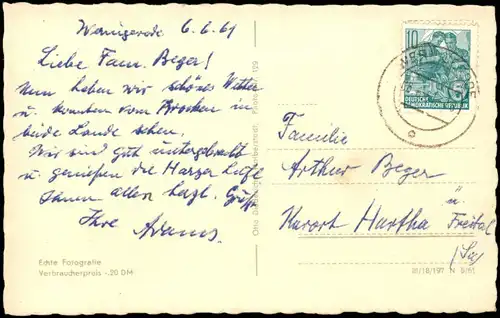 Wernigerode 6.6.61
Liebe Fam. Beger!
Nun haben wir schönes Wetter
u. konnten vom Brocken in
beide Lande sehen.
Wir sind gut untergebracht
u. genießen die Harzer Luft
Ihnen allen herzl. Grüße
Ihre Adams
Echte Fotografie
Verbraucherpreis -.20 DM
10
DEUTSCHE
DEMOKRATISCHE REPUBLIK
Familie
Arthur Beger
Kurort Hartha ü Freital
(Sa)
III/18/197 N 8/61